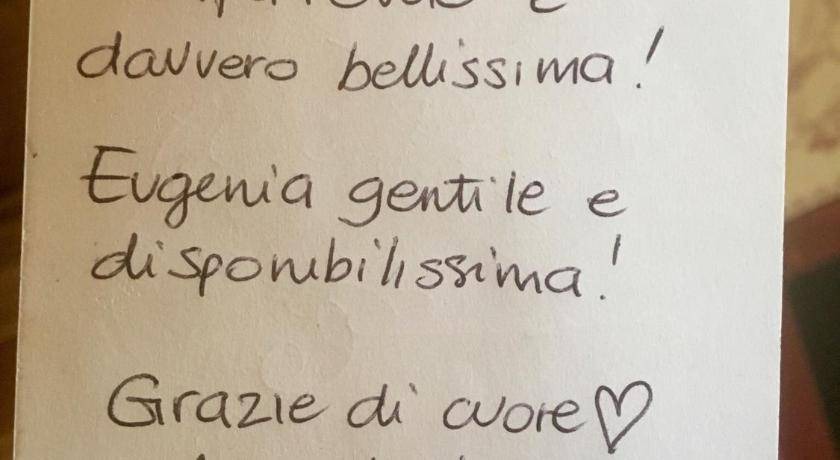 davvero bellissima!
Eugenia gentile e
disponibilissima!
Grazie di cuore♡